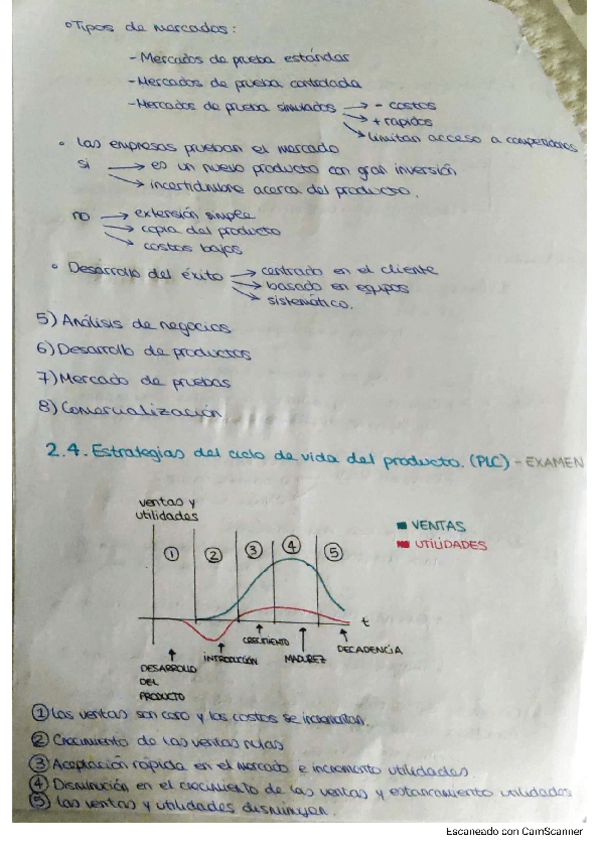 • Tipos de mercados:
- Mercados de prueba estándar
- Mercados de prueba controlada
- Mercados de prueba simulados → - costos
→ + rápidos
→ limitan acceso a competidores
• Las empresas prueban el mercado
si → es un nuevo producto con gran inversión
→ incertidumbre acerca del producto.
no → extensión simple
→ copia del producto
→ costos bajos
• Desarrollo del éxito → centrado en el cliente
→ basado en equipos
→ sistemático.
5) Análisis de negocios
6) Desarrollo de productos
7) Mercado de pruebas
8) Comercialización
2.4. Estrategias del ciclo de vida del producto. (PLC) - EXAMEN
ventas y
utilidades
VENTAS
UTILIDADES
① ② ③ ④ ⑤
t
DESARROLLO
DEL
PRODUCTO
INTRODUCCIÓN
CRECIMIENTO
MADUREZ
DECADENCIA
① Las ventas son cero y los costos se incrementan.
② Crecimiento de las ventas nulas
③ Aceptación rápida en el mercado e incremento utilidades
④ Disminución en el crecimiento de las ventas y estancamiento utilidades
⑤ Las ventas y utilidades disminuyen.
Escaneado con CamScanner